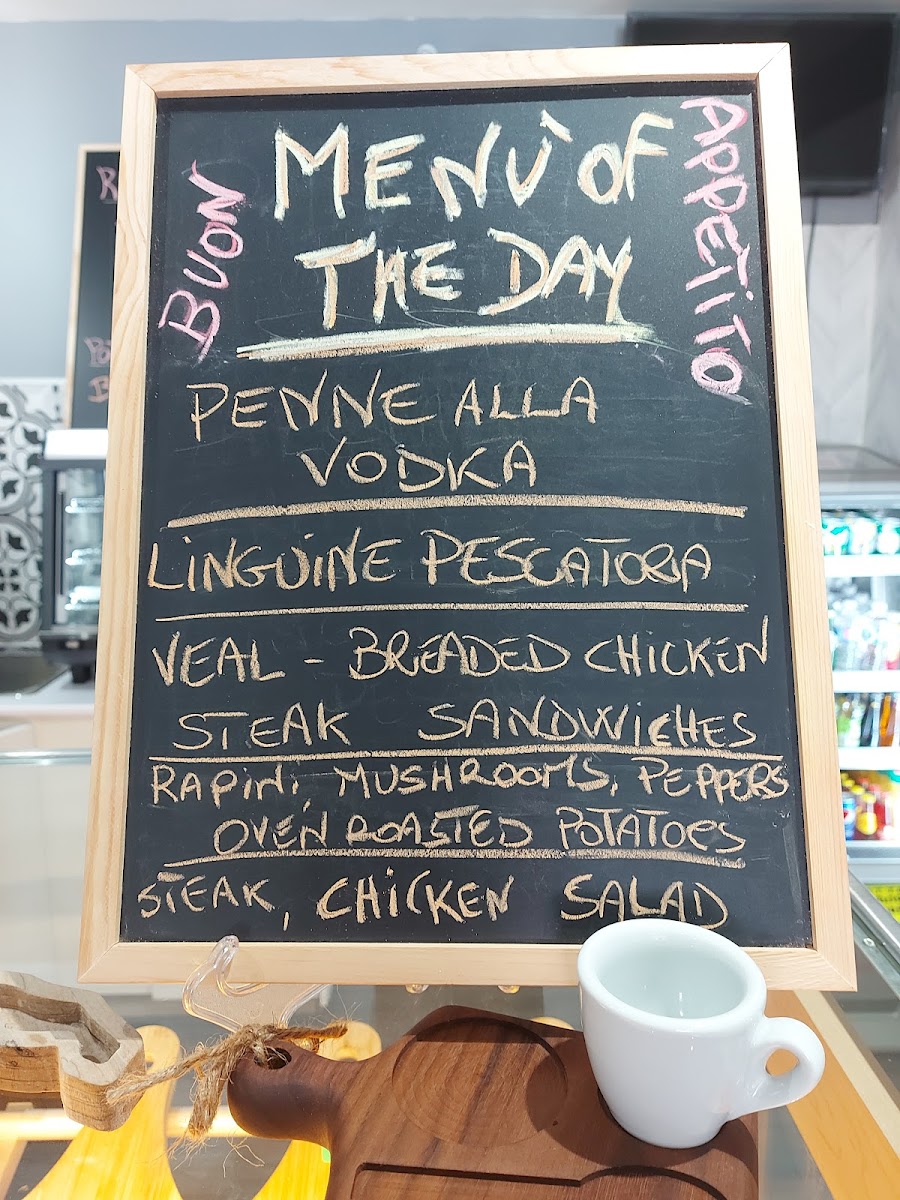 MENÙ OF
THE DAY
BUON
APPETITO
PENNE ALLA
VODKA
LINGUINE PESCATORA
VEAL - BREADED CHICKEN
STEAK SANDWICHES
RAPINI, MUSHROOMS, PEPPERS
OVEN ROASTED POTATOES
STEAK, CHICKEN SALAD